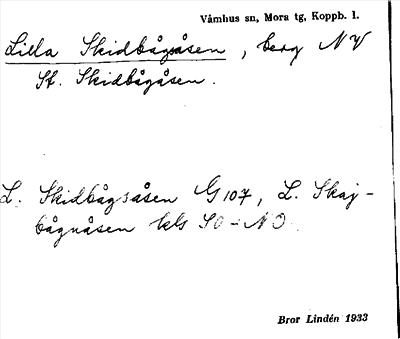 Våmhus sn, Mora tg, Koppb. l.
Lilla Skidbågsåsen, berg NV
St. Skidbågåsen.
L. Skidbågsåsen G 107, L. Skaj-
bågnåsen kls SO-NO.
Bror Lindén 1933